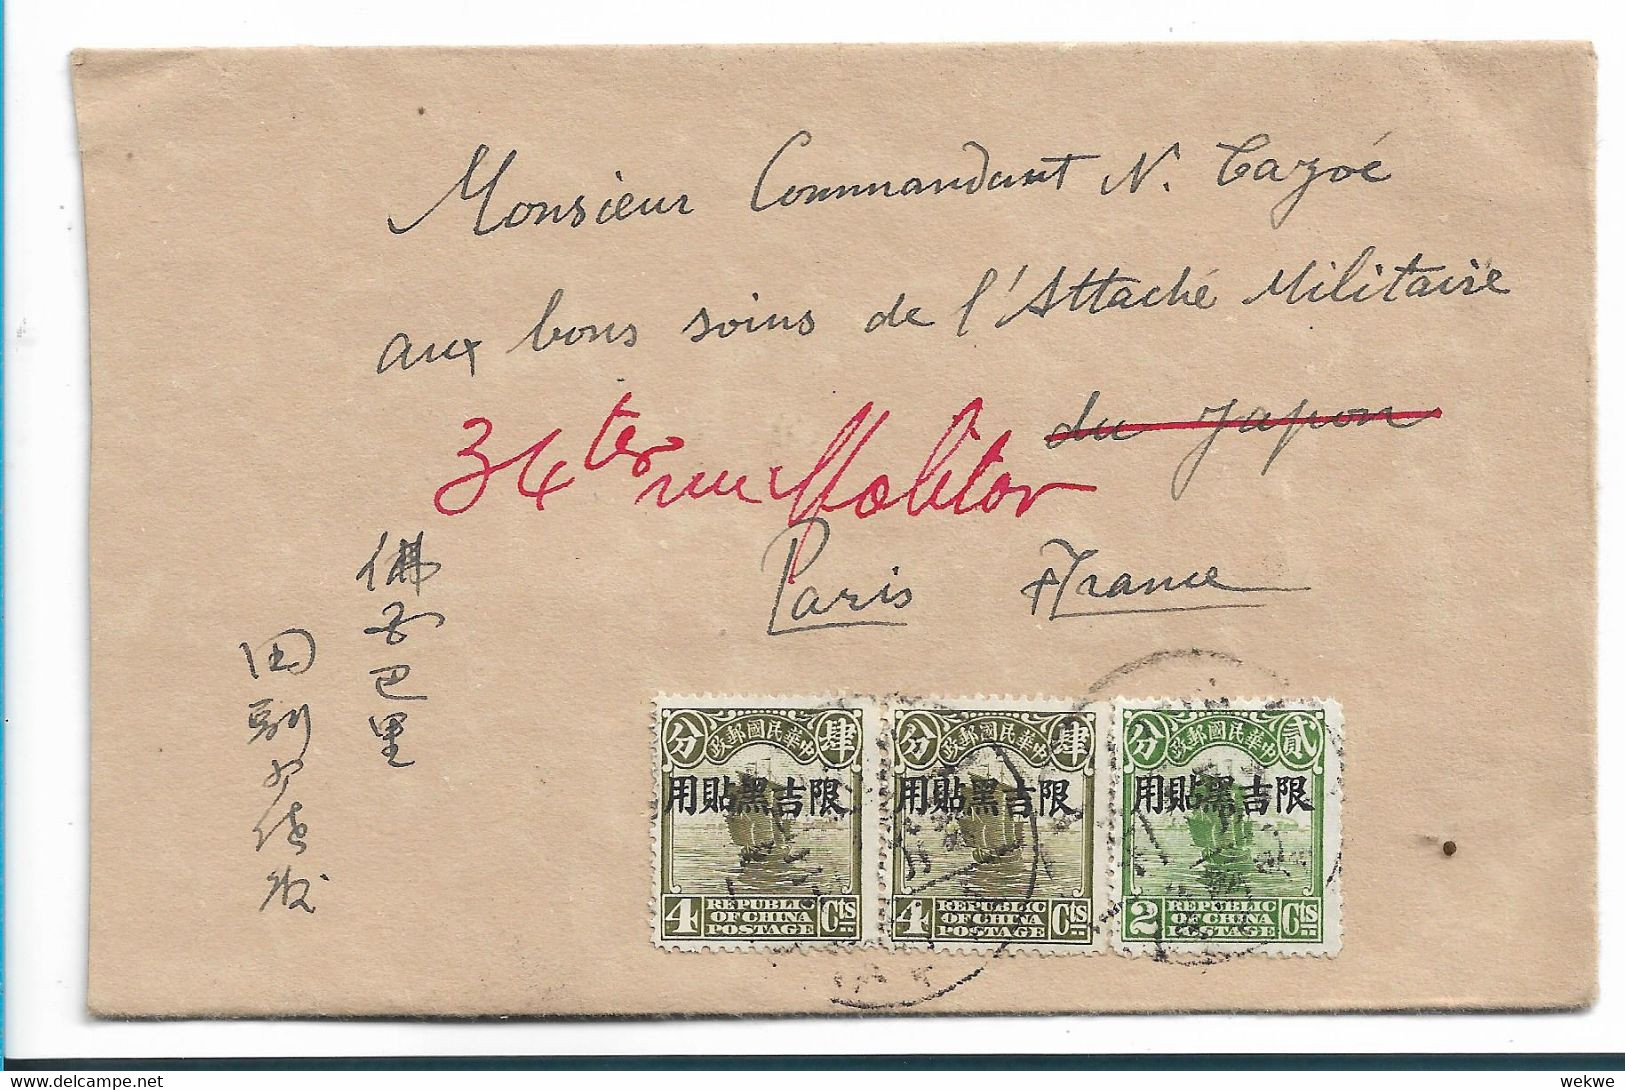 Monsieur Commandant N. Tazoé
aux bons soins de l'Attaché Militaire
du Japon
34 ter rue Molitor
Paris France
佛国巴里
分 政郵國民華中 肆
用貼黑吉限
4 REPUBLIC OF CHINA POSTAGE Cts
分 政郵國民華中 肆
用貼黑吉限
4 REPUBLIC OF CHINA POSTAGE Cts
分 政郵國民華中 貳
用貼黑吉限
2 REPUBLIC OF CHINA POSTAGE Cts
wekwe